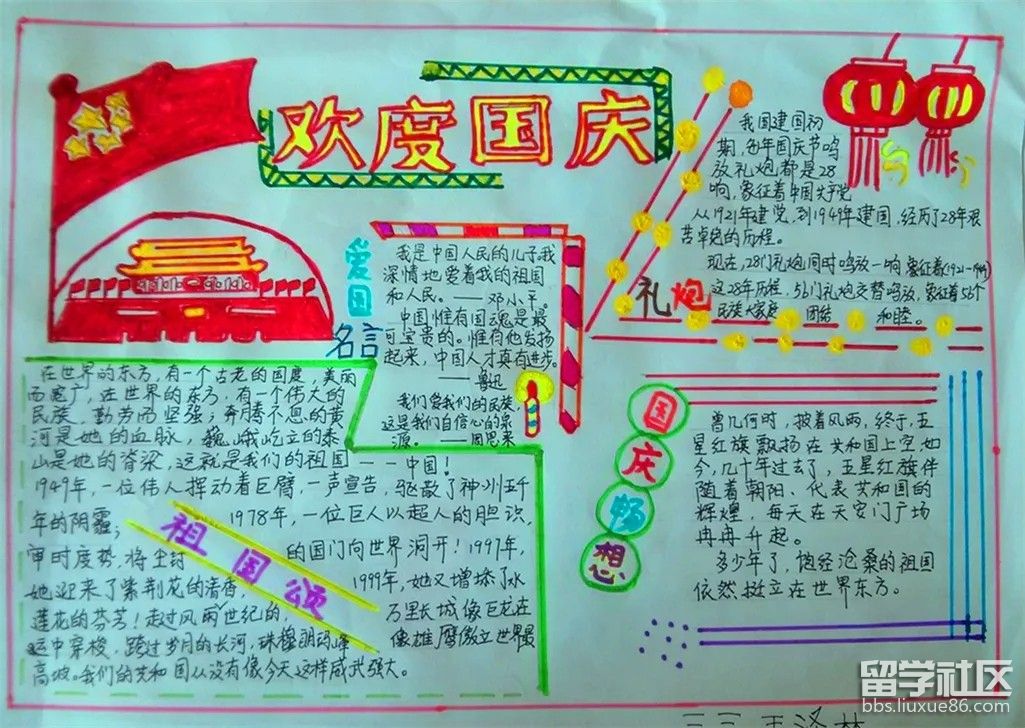 欢度国庆
我国建国初
期，每年国庆节鸣
放礼炮都是28
响，象征着中国共产党
从1921年建党，到1949年建国，经历了28年艰
苦卓绝的历程。
现在，28门礼炮同时鸣放一响，象征着(1921-1949)
这28年历程，56门礼炮交替鸣放，象征着56个
民族大家庭 团结 和睦。
礼炮
爱国
名言
我是中国人民的儿子，我
深情地爱着我的祖国
和人民。——邓小平。
中国惟有国魂是最
可宝贵的。惟有他发扬
起来，中国人才真有进步。
——鲁迅
我们爱我们的民族，
这是我们自信心的泉
源。——周恩来
在世界的东方，有一个古老的国度，美丽
而宽广，在世界的东方，有一个伟大的
民族，勤劳而坚强；奔腾不息的黄
河是她的血脉，巍峨屹立的泰
山是她的脊梁，这就是我们的祖国——中国！
1949年，一位伟人挥动着巨臂，一声宣告，驱散了神州五千
年的阴霾； 1978年，一位巨人以超人的胆识，
审时度势，将尘封 的国门向世界洞开！1997年，
她迎来了紫荆花的清香， 1999年，她又增添了水
莲花的芬芳！走过风雨世纪的， 万里长城像巨龙在
运中穿梭，跨过岁月的长河，珠穆朗玛峰 像雄鹰傲立世界最
高坡。我们的共和国从没有像今天这样威武强大。
祖国颂
国庆畅想
曾几何时，披着风雨，终于，五
星红旗飘扬在共和国上空，如
今，几十年过去了，五星红旗伴
随着朝阳、代表共和国的
辉煌，每天在天安门广场
冉冉升起。
多少年了，饱经沧桑的祖国
依然挺立在世界东方。
留学社区
bbs.liuxue86.com